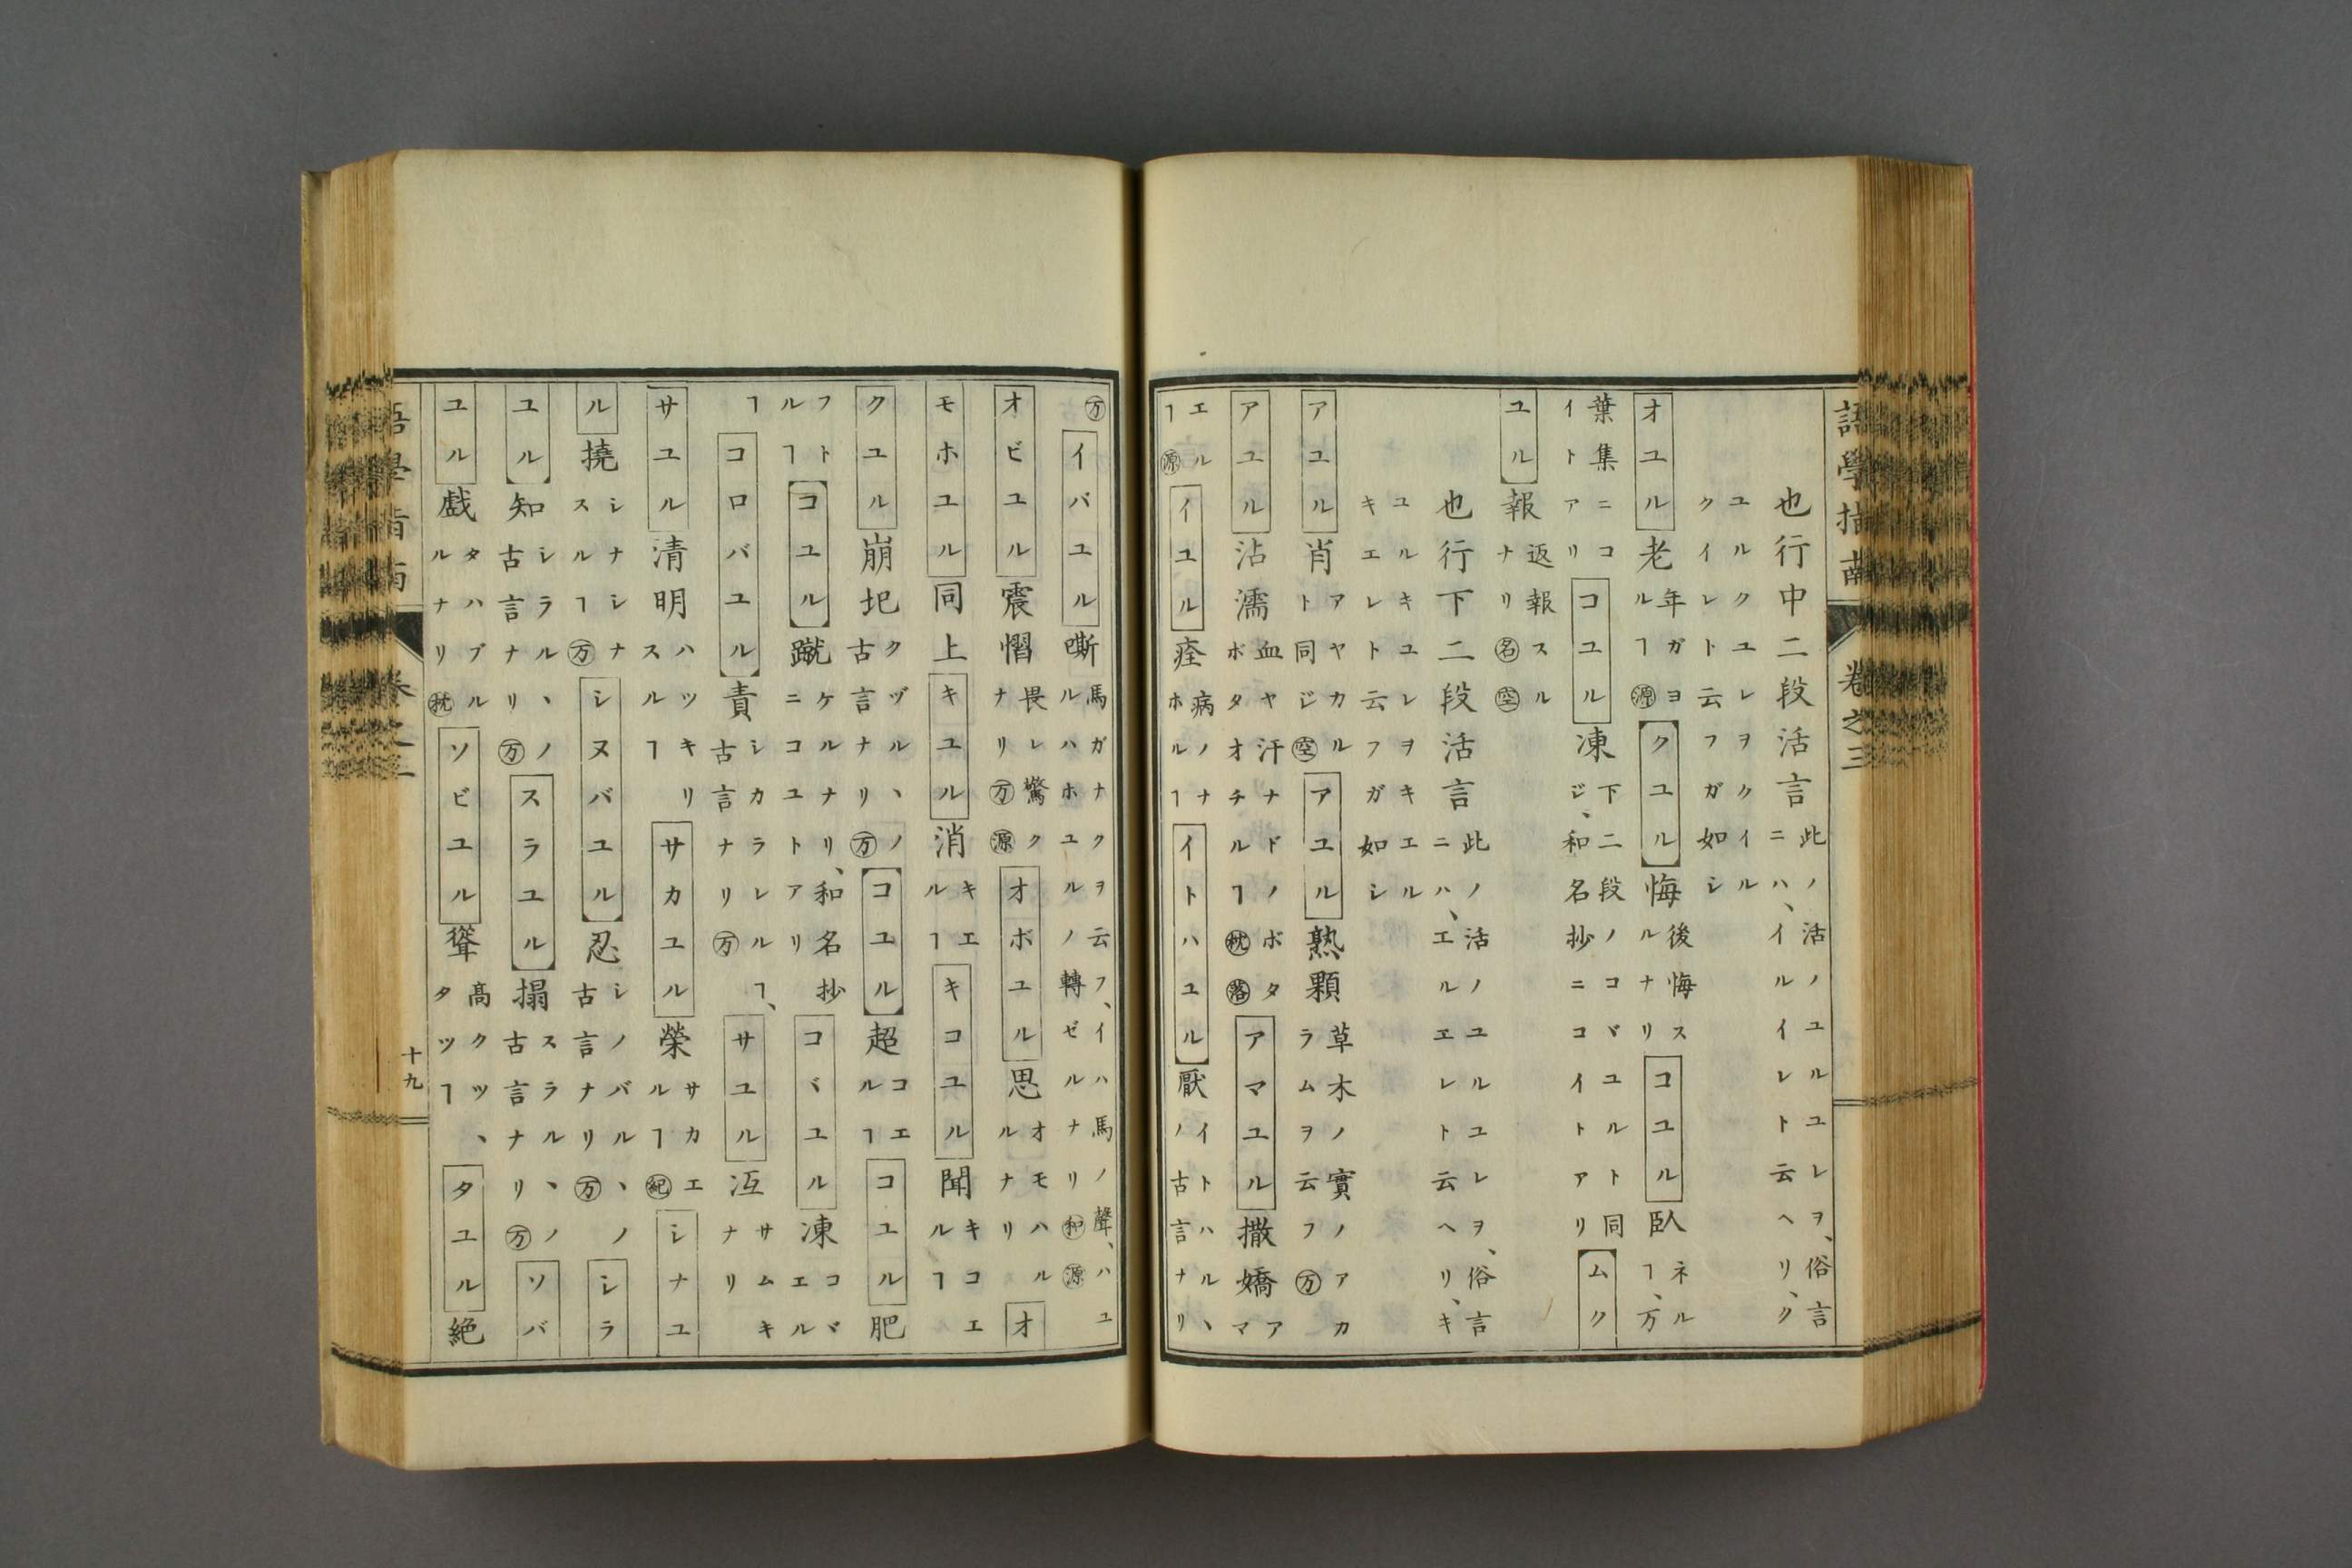 語學指南 卷之三
也行中二段活言 此ノ活ノユルユレヲ、俗言ニハ、イルイレト云ヘリ、ク
ユルクユレヲクイルクイレト云フガ如シ
オユル 老 年ガヨルヿ 源 クユル 悔 後悔スルナリ コユル 臥 ネルヿ、万
葉集ニコイトアリ コユル 凍 下二段ノコヾユルト同ジ、和名抄ニコイトアリ ムク
ユル 報 返報スルナリ 名 空
也行下二段活言 此ノ活ノユルユレヲ、俗言ニハ、エルエレト云ヘリ、キ
ユルキユレヲキエルキエレト云フガ如シ
アユル 肖 アヤカルト同ジ 空 アユル 熟顆 草木ノ實ノアカラムヲ云フ 万
アユル 沾濡 血ヤ汗ナドノボタボタオチルヿ 枕 落 アマユル 撒嬌 アママ
エルヿ 源 イユル 痊 病ノナホルヿ イトハユル 厭 イトハルヽノ古言ナリ
万 イバユル 嘶 馬ガナクヲ云フ、イハ馬ノ聲、ハユルハホユルノ轉ゼルナリ 和 源
オビユル 震慴 畏レ驚クナリ 万 源 オボユル 思 オモハルルナリ オ
モホユル 同上 キユル 消 キエルヿ キコユル 聞 キコエルヿ
クユル 崩圯 クヅルヽノ古言ナリ 万 コユル 超 コエルヿ コユル 肥
フトルヿ コユル 蹴 ケルナリ、和名抄ニコユトアリ コヾユル 凍 コヾエル
ヿ コロバユル 責 シカラレルヿ、古言ナリ 万 サユル 冱 サムキナリ
サユル 清明 ハツキリスルヿ サカユル 榮 サカエルヿ 紀 シナユ
ル 撓 シナシナスルヿ 万 シヌバユル 忍 シノバルヽノ古言ナリ 万 シラ
ユル 知 シラルヽノ古言ナリ 万 スラユル 搨 スラルヽノ古言ナリ 万 ソバ
ユル 戯 タハブルルナリ 枕 ソビユル 聳 高クツヽタツヿ タユル 絶
語學指南 卷之三
十九